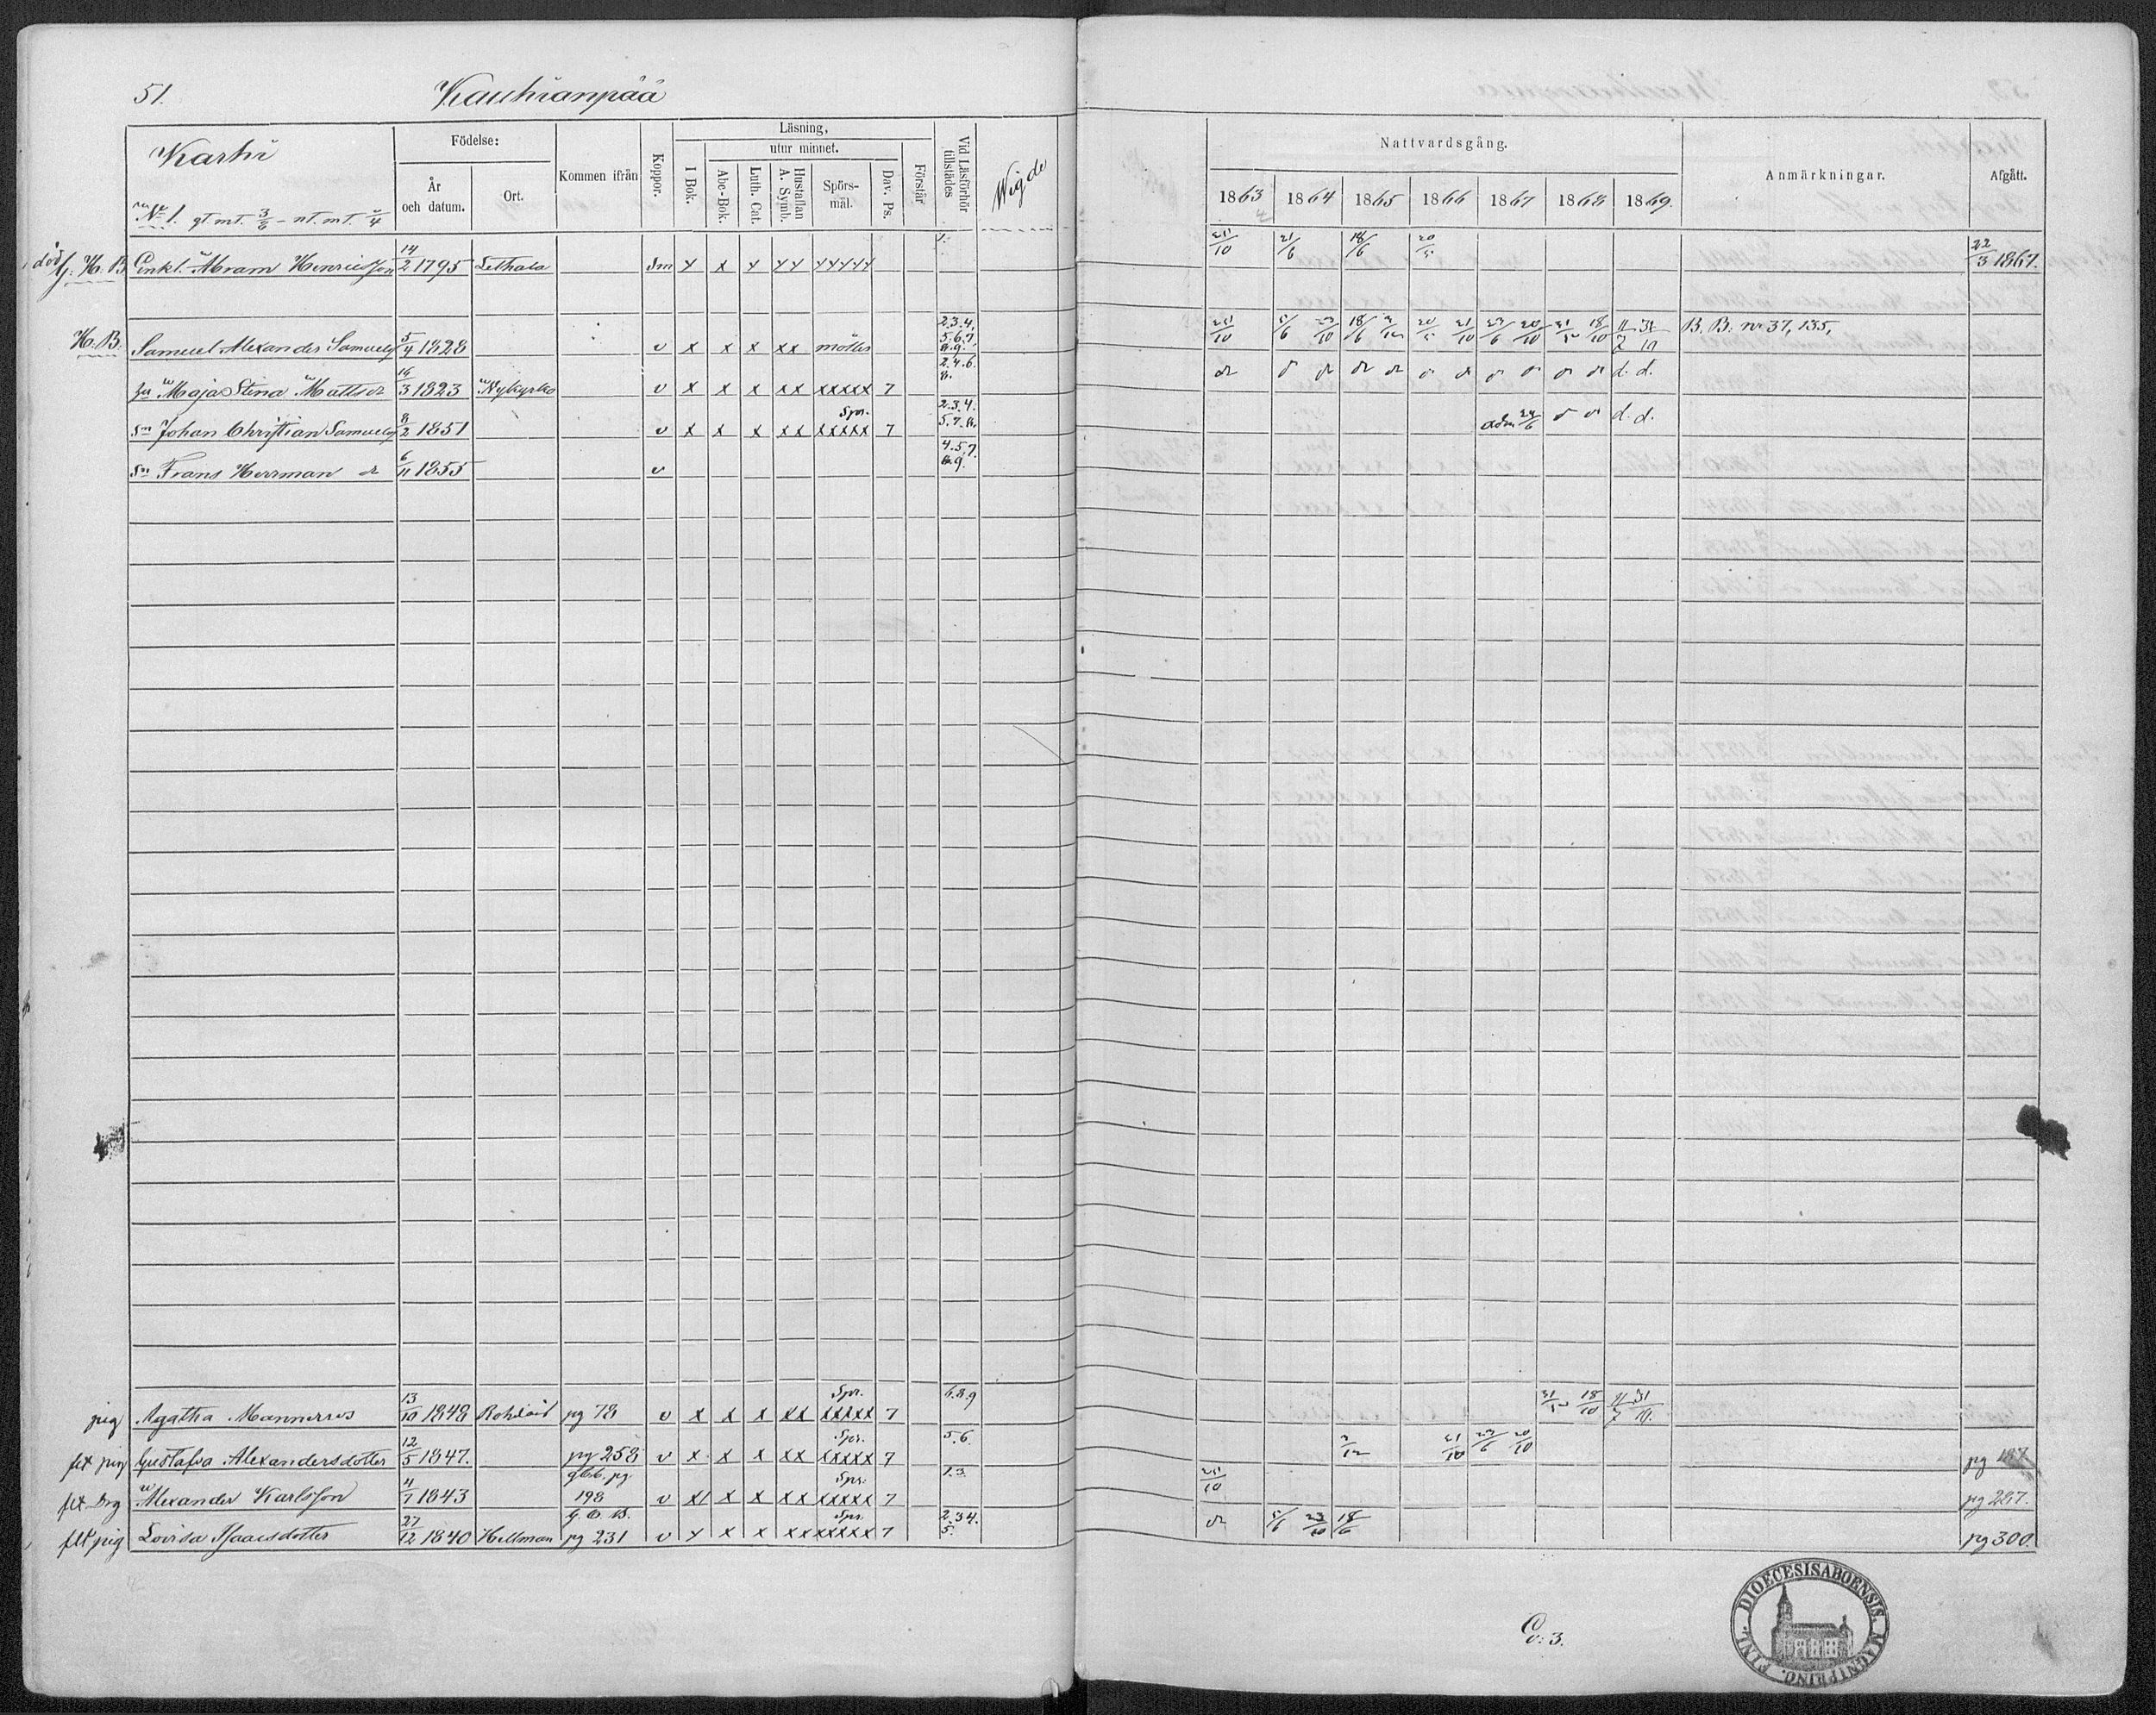 51. Kauhianpää
Karhi
No 1. gt. mt. 3/8 – nt. mt. 1/4
Födelse:
År och datum.
Ort.
Kommen ifrån
Koppor.
Läsning,
I Bok.
utur minnet.
Abc-Bok.
Luth. Cat.
Hustaflan A. Symb.
Spörs-mål.
Dav. Ps.
Förstår
Vid Läsförhör tillstädes
Wigde
Nattvardsgång.
1863 1864 1865 1866 1867 1868 1869.
Anmärkningar.
Afgått.
död f. H. B. Enkl. Abram Henricsson 14/2 1795 Lethala Sm 1. 25/10 21/6 18/6 20/5 22/3 1867.
H. B. Samuel Alexander Samuelss 5/4 1828 v x x x xx 2.3.4. 5.6.7. 8.9. 25/10 5/6 23/10 18/6 B. B. no 37, 135,
hu Maja Stina Mattsdr 16/3 1823 Nykyrko v x x x xx xxxxx 7 2.4.6. 8. d. d.
sn Johan Christian Samuelss 8/2 1851 v x x x xx Spr. xxxxx 7 2.3.4. 5.7.8. adm 24/6 d. d.
sn Frans Herrman dr 6/11 1855 v 4.5.7. 8.9.
pig Agatha Mannerros 13/10 1848 pg 78 v x x x xx Spr. xxxxx 7 6.8.9 18/10
flt pig Gustafva Alexandersdotter 12/5 1847. pg 258 v x x x xx Spr. xxxxx 7 5.6. 23/6 20/10 pg 187
flt drg Alexander Karlsson 4/7 1843 pg. 198 v x x x xx Spr. xxxxx 7 1.3. 25/10 pg 287.
flt pig Lovisa Isaacsdotter 27/12 1840 Hellman pg 231 v x x x xx Spr. xxxxx 7 2.3.4. 5. 5/6 23/10 18/6 pg 300.
C: 3.
DIOECESIS ABOENSIS. MAGNI PRINC. FINL.